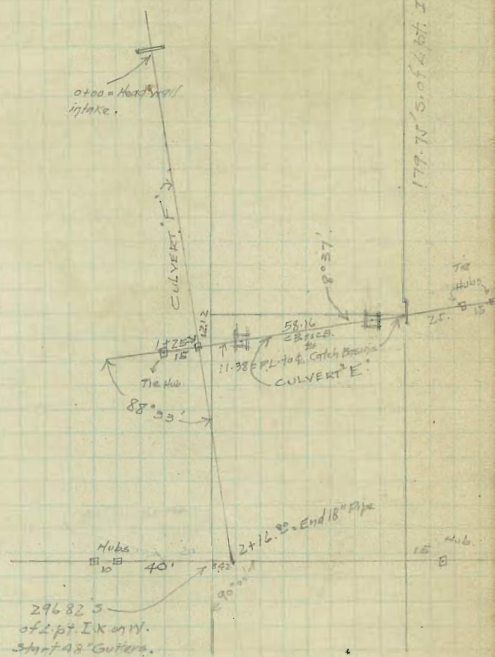 0+00 = Head wall
intake.
179.75' S. of ∠.pt. I
CULVERT "F"
8°37'
Tie
Hubs
25. 15
12.12
58.16
CB to CB
1+25
15
11.38 = P.L. to ¢ Catch Basins
CULVERT "E"
Tie Hub
88°33'
2+16.80 = End 18" Pipe
Hubs
10 40'
15 Hub.
90°00'
296.82' S
of ∠.pt. I.K on W.
Start 48" Gutters.